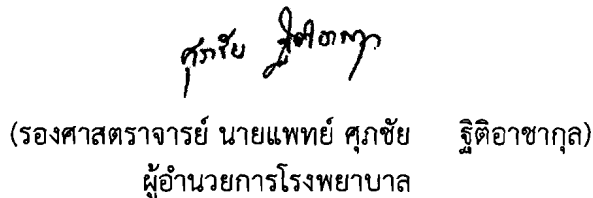 ศุภชัย ฐิติอาชากุล
(รองศาสตราจารย์ นายแพทย์ ศุภชัย ฐิติอาชากุล)
ผู้อำนวยการโรงพยาบาล